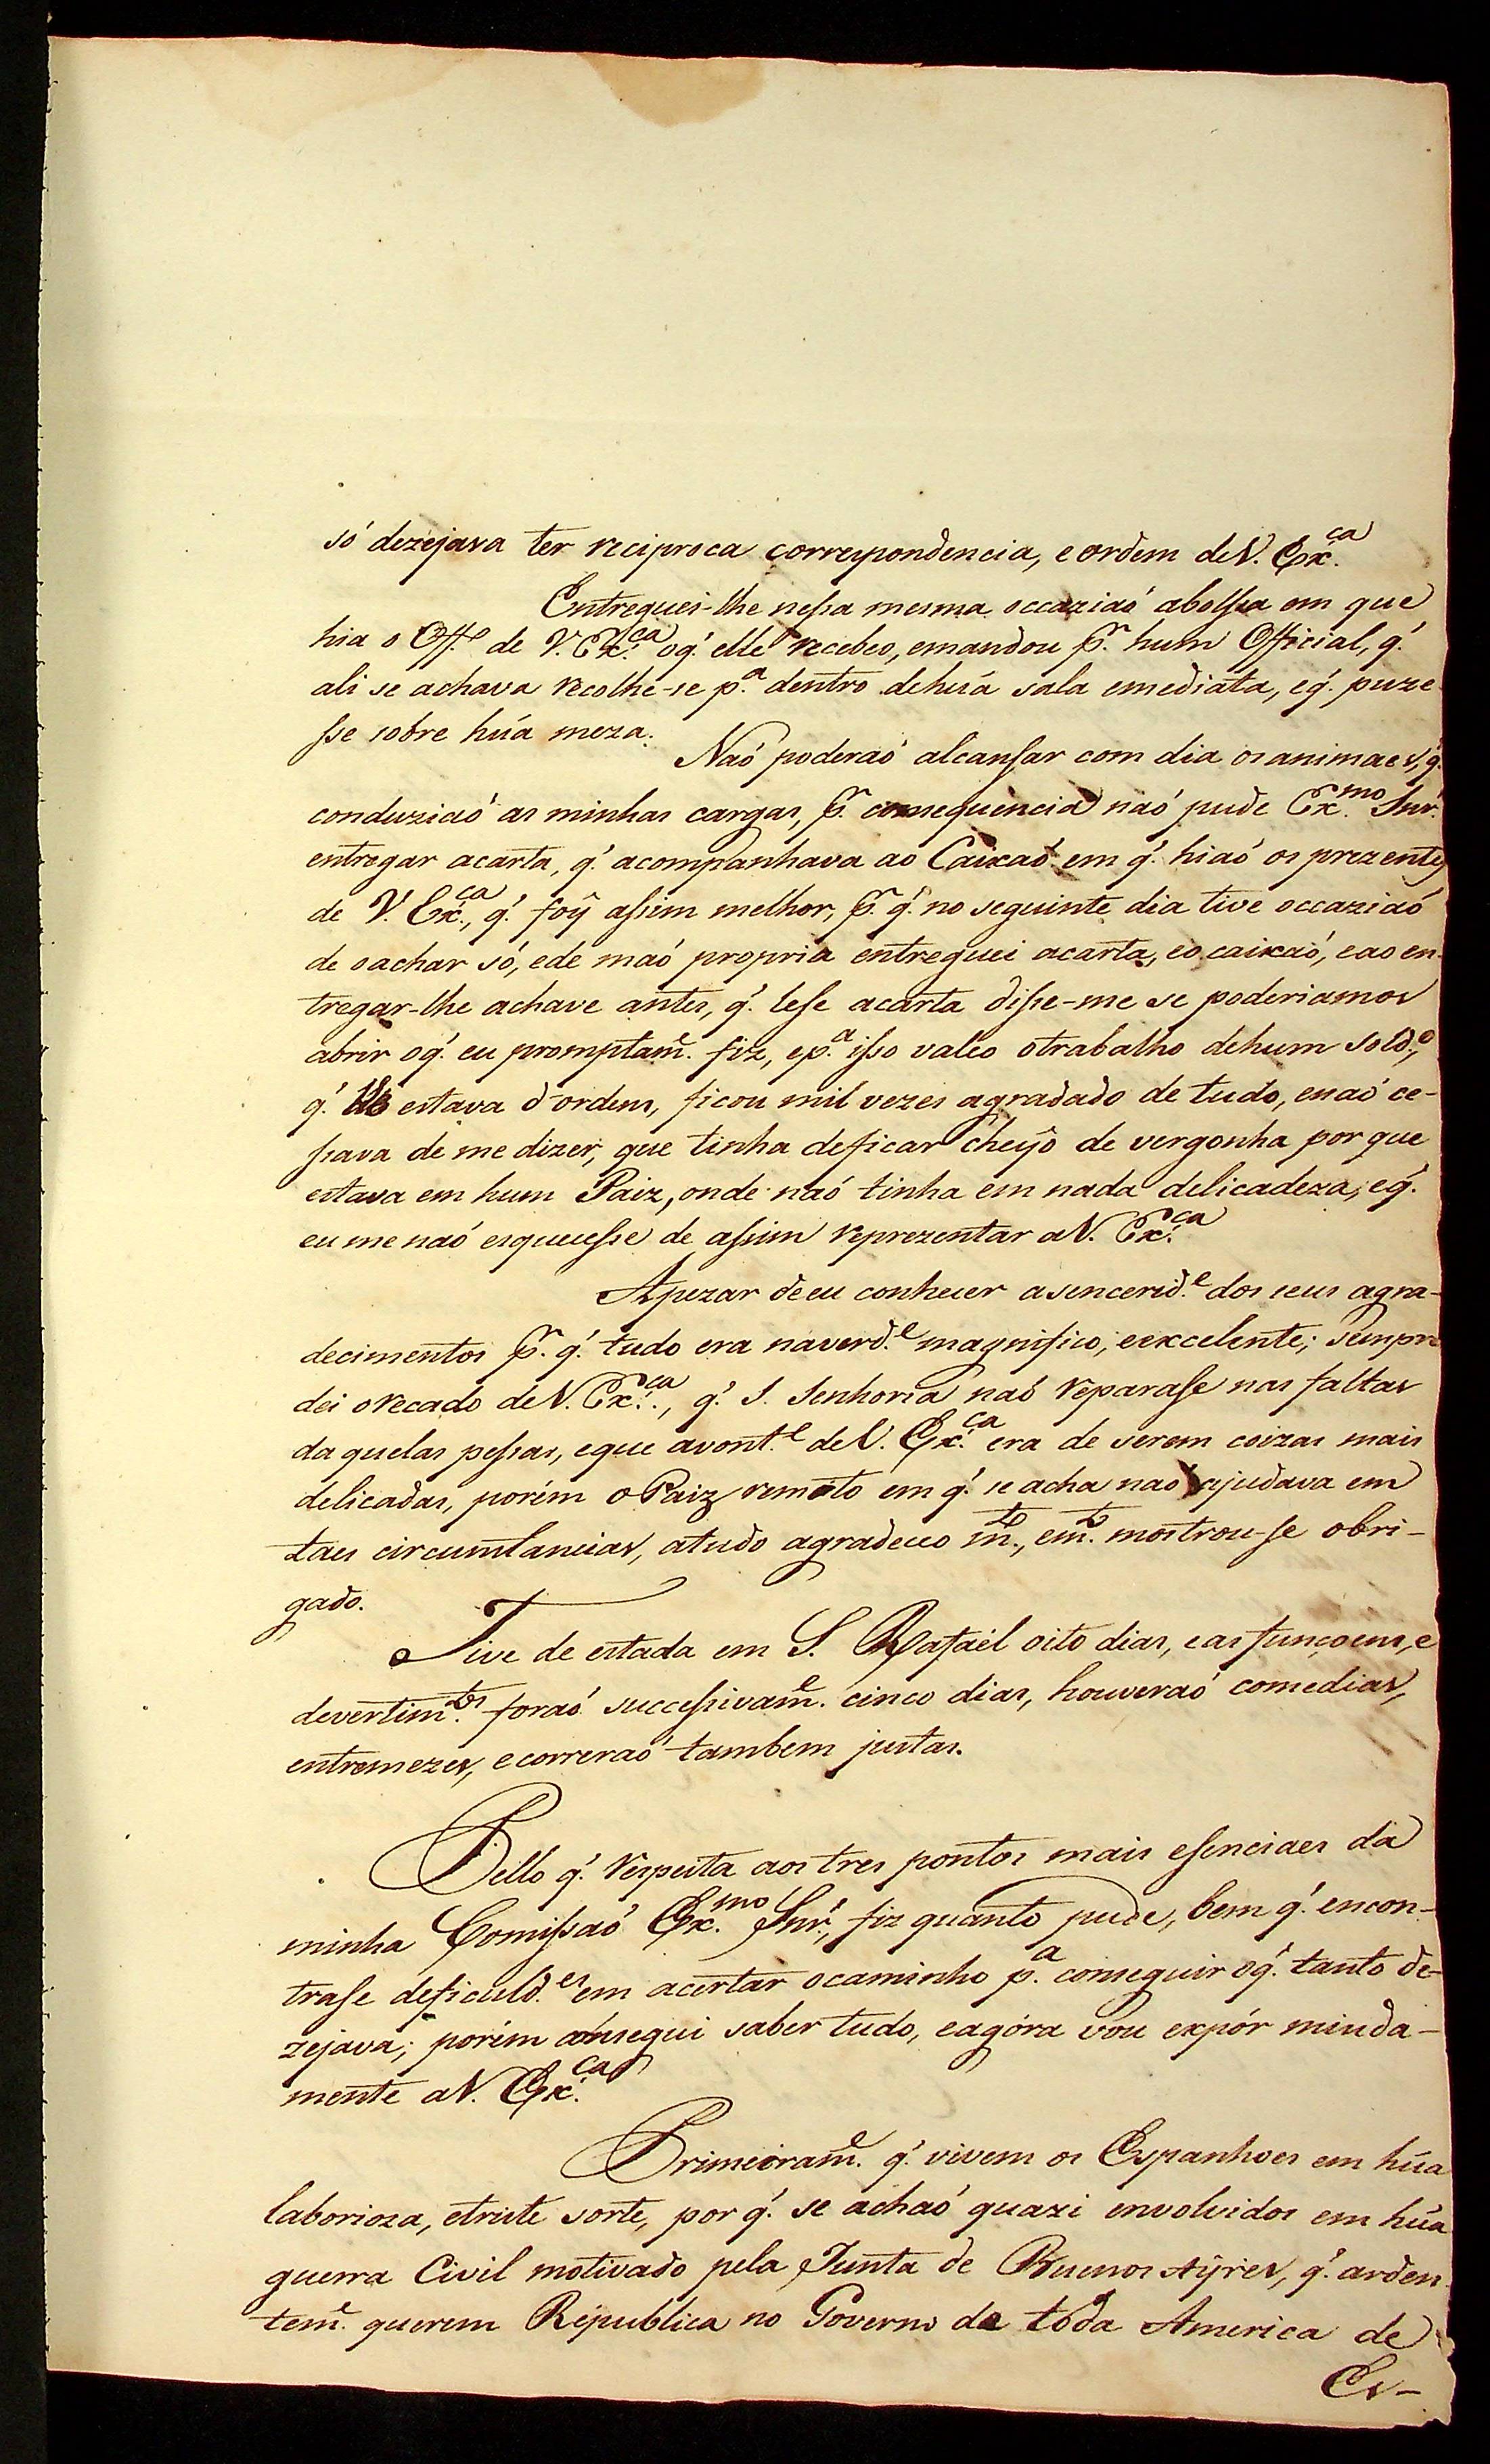 só dezejava ter reciproca correspondencia, e ordem de V. Ex.ca
Entreguei-lhe nessa mesma occaziaó abolssa em que
hia o Off.º de V. Ex.ca oq.' elle recebeo, emandou p.r hum Official, q.'
ali se achava recolhe-se p.a dentro dehuã sala emediata, eq.' puze
sse sobre huã meza.
Naó poderaó alcansar com dia os animaes, q.'
conduziaó as minhas cargas, p.r consequencia naó pude Ex.mo Snr.'
entregar acarta, q.' acompanhava ao Caixaó em q.' hiaó os prezentes
de V. Ex.ca, q.' foÿ assim melhor, p.r q.' no seguinte dia tive occaziaó
de oachar só, ede maó propria entreguei acarta, eo caixaó, eao en-
tregar-lhe achave antes, q.' lese acarta disse-me se poderiamos
abrir oq.' eu promptam.e fiz, ep.a isso valeo otrabalho dehum sold.º,
q.' estava d'ordens, ficou mil vezes agradado de tudo, enaó ce-
ssava de me dizer, que tinha deficar cheÿo de vergonha por que
estava em hum Paiz, onde naó tinha em nada delicadeza, eq.'
eu me naó esquecesse de assim reprezentar aV. Ex.ca
Apezar de eu conhecer asencerid.e dos seus agra-
decimentos p.r q.' tudo era naverd.e magnifico, eexcelente; sempre
dei orecado de V. Ex.ca, q.' S. Senhoria naó reparase nas faltas
daquelas pessas, eque avont.e de V. Ex.ca era de serem coizas mais
delicadas, porém o Paiz remoto em q.' se acha naó ajudava em
taes circumstancias, atudo agradeceo m.to, em.to mostrou-se obri-
gado.
Tive de estada em S. Rafaél oito dias, eas funçoens, e
devertim.tos foraó successivam.e cinco dias, houveraó comedias,
entremezes, ecorreraó tambem justas.
Pello q.' respeita aos tres pontos mais esenciaes da
minha Comissaó Ex.mo Snr.', fiz quanto pude, bem q.' encon-
trase deficuld.es em acertar ocaminho p.a conseguir oq.' tanto de-
zejava; porém consegui saber tudo, eagóra vou expór miuda-
mente aV. Ex.ca
Primeiram.e q.' vivem os Espanhoes em huã
laborioza, etriste sorte, por q.' se achaó quazi envolvidos em huã
guerra Civil motivado pela Junta de Buenos Aÿres, q.' arden-
tem.e querem Républica no Governo de toda America de
Es-